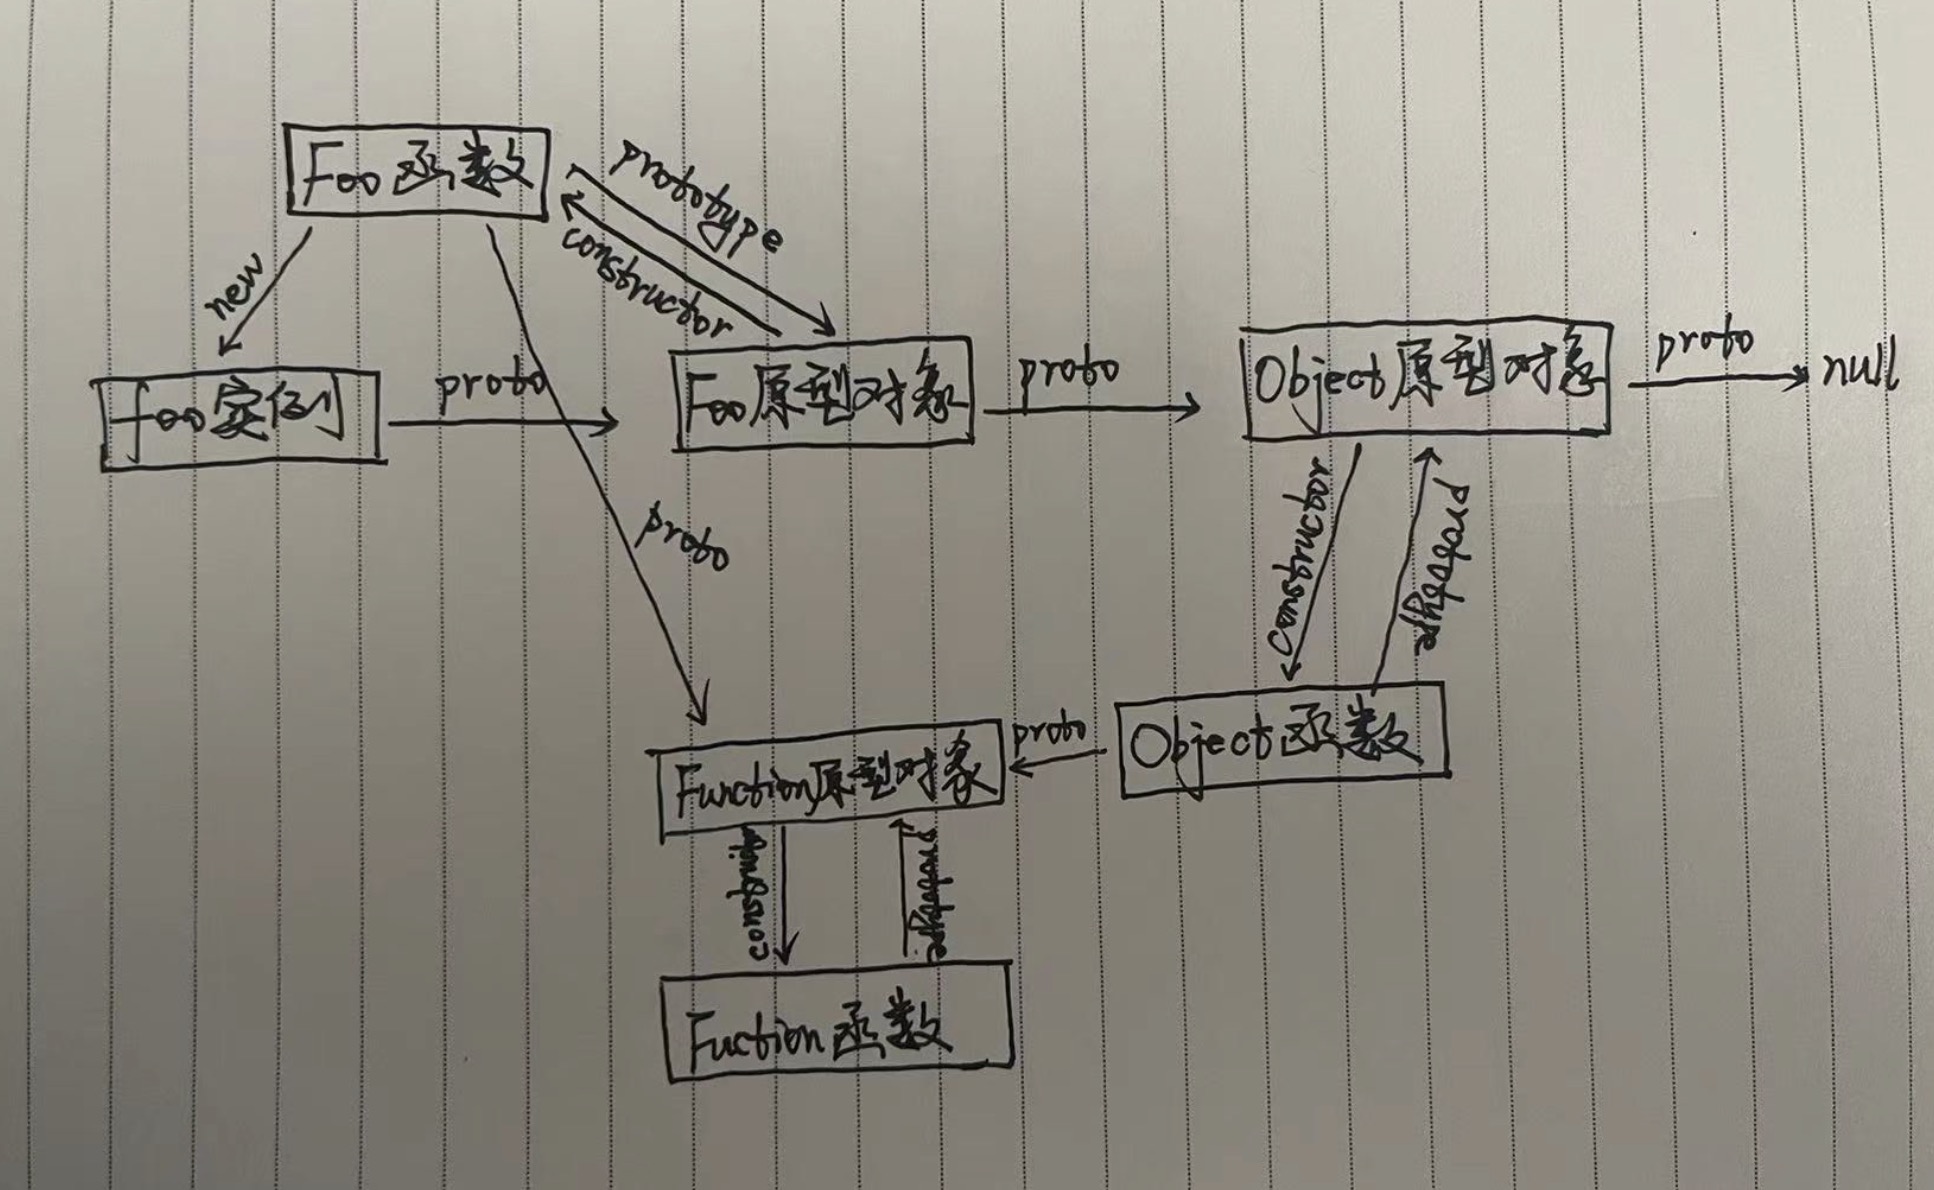 Foo函数
prototype
constructor
new
foo实例
proto
Foo原型对象
proto
Object原型对象
proto
null
proto
constructor
prototype
Function原型对象
proto
Object函数
prototype
Fuction函数